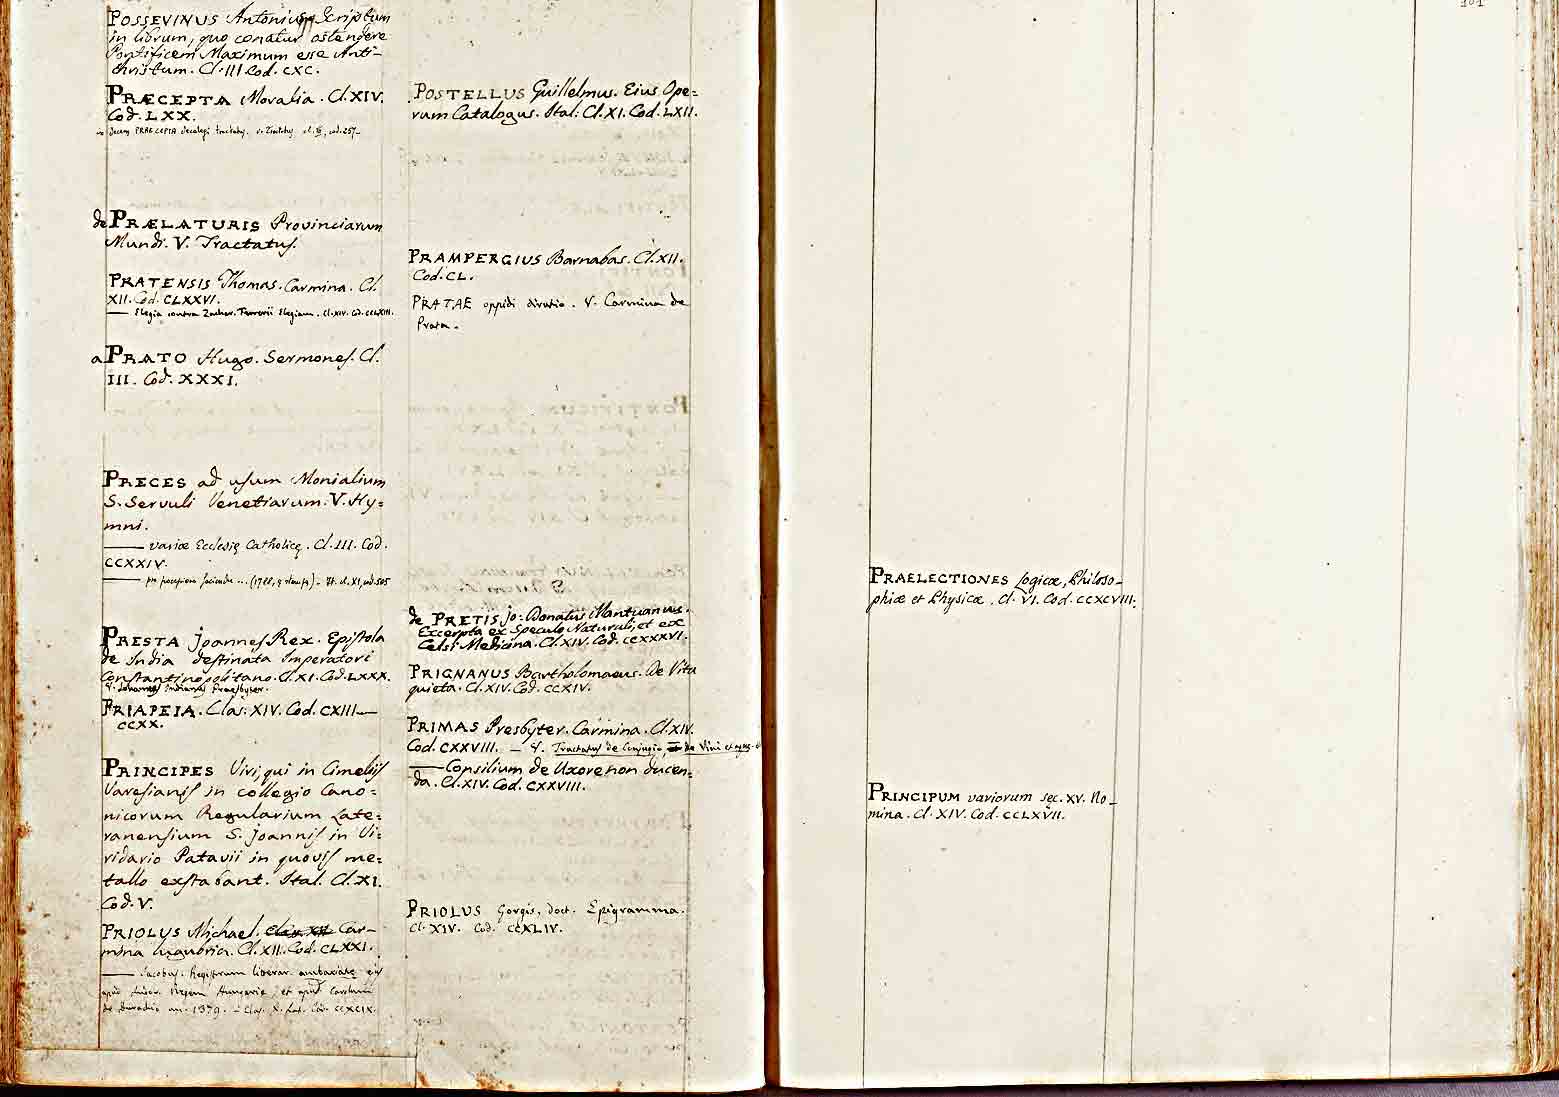 POSSEVINUS Antonius Scriptum
in librum, quo conatur ostendere
Pontificem Maximum esse Anti-
christum. Cl. III Cod. CXC.
PRÆCEPTA Moralia. Cl. XIV.
Cod. LXX.
decem PRAECEPTA decalogi tractatus. v. Tractatus cl. III, cod. 257
de PRÆLATURIS Provinciarum
Mundi. V. Tractatus.
PRATENSIS Thomas. Carmina. Cl.
XII. Cod. CLXXVI.
— Elegia contra Zachar. Ferrerii Elegiam. Cl. XIV. Cod. CCLXIII.
a PRATO Hugo. Sermones. Cl.
III. Cod. XXXI.
PRECES ad usum Monialium
S. Servuli Venetiarum. V. Hy=
mni.
— variæ Ecclesię Catholicę. Cl. III. Cod.
CCXXIV.
— pro 
PRESTA Joannes Rex. Epistola
de India destinata Imperatori
Constantinopolitano. Cl. XI. Cod. LXXX.
V. Johannes Indianus Praesbyter.
PRIAPEIA. Clas. XIV. Cod. CXIII —
CCXX.
PRINCIPES Viri, qui in Cimeliis
Varesianis in collegio Cano=
nicorum Regularium Late=
ranensium S. Joannis in Vi=
ridario Patavii in quovis me=
tallo exstabant. Ital. Cl. XI.
Cod. V.
PRIOLUS Michael. Car-
mina lugubria. Cl. XII. Cod. CLXXI.
— Jacobus. Registrum literar. ambaxiatę eius
apud Ludov. Regem Hungarię, et apud Carolum
de Duratio an. 1379. — Clas. X. Lat. Cod. CCXCIX.
POSTELLUS Guillelmus. Eius Ope=
rum Catalogus. Ital: Cl. XI. Cod. LXII.
PRAMPERGIUS Barnabas. Cl. XII.
Cod. CL.
PRATAE oppidi divutio. V. Carmina de
Prata.
de PRETIS Jo: Donatus Mantuanus.
Excerpta ex Speculo Naturali, et ex
Celsi Medicina. Cl. XIV. Cod. CCXXXVI.
PRIGNANUS Bartholomaeus. De Vita
quieta. Cl. XIV. Cod. CCXIV.
PRIMAS Presbyter. Carmina. Cl. XIV.
Cod. CXXVIII. — V. Tractatus de Conjugio, et de Vini et aquę
— Consilium de Uxore non ducen=
da. Cl. XIV. Cod. CXXVIII.
PRIOLUS Gorgis, doct. Epigramma.
Cl. XIV. Cod. CCXLIV.
101
PRAELECTIONES Logicæ, Philoso-
phiæ et Physicæ. Cl. VI. Cod. CCXCVIII.
PRINCIPUM variorum sęc. XV. No-
mina. Cl. XIV. Cod. CCLXVII.